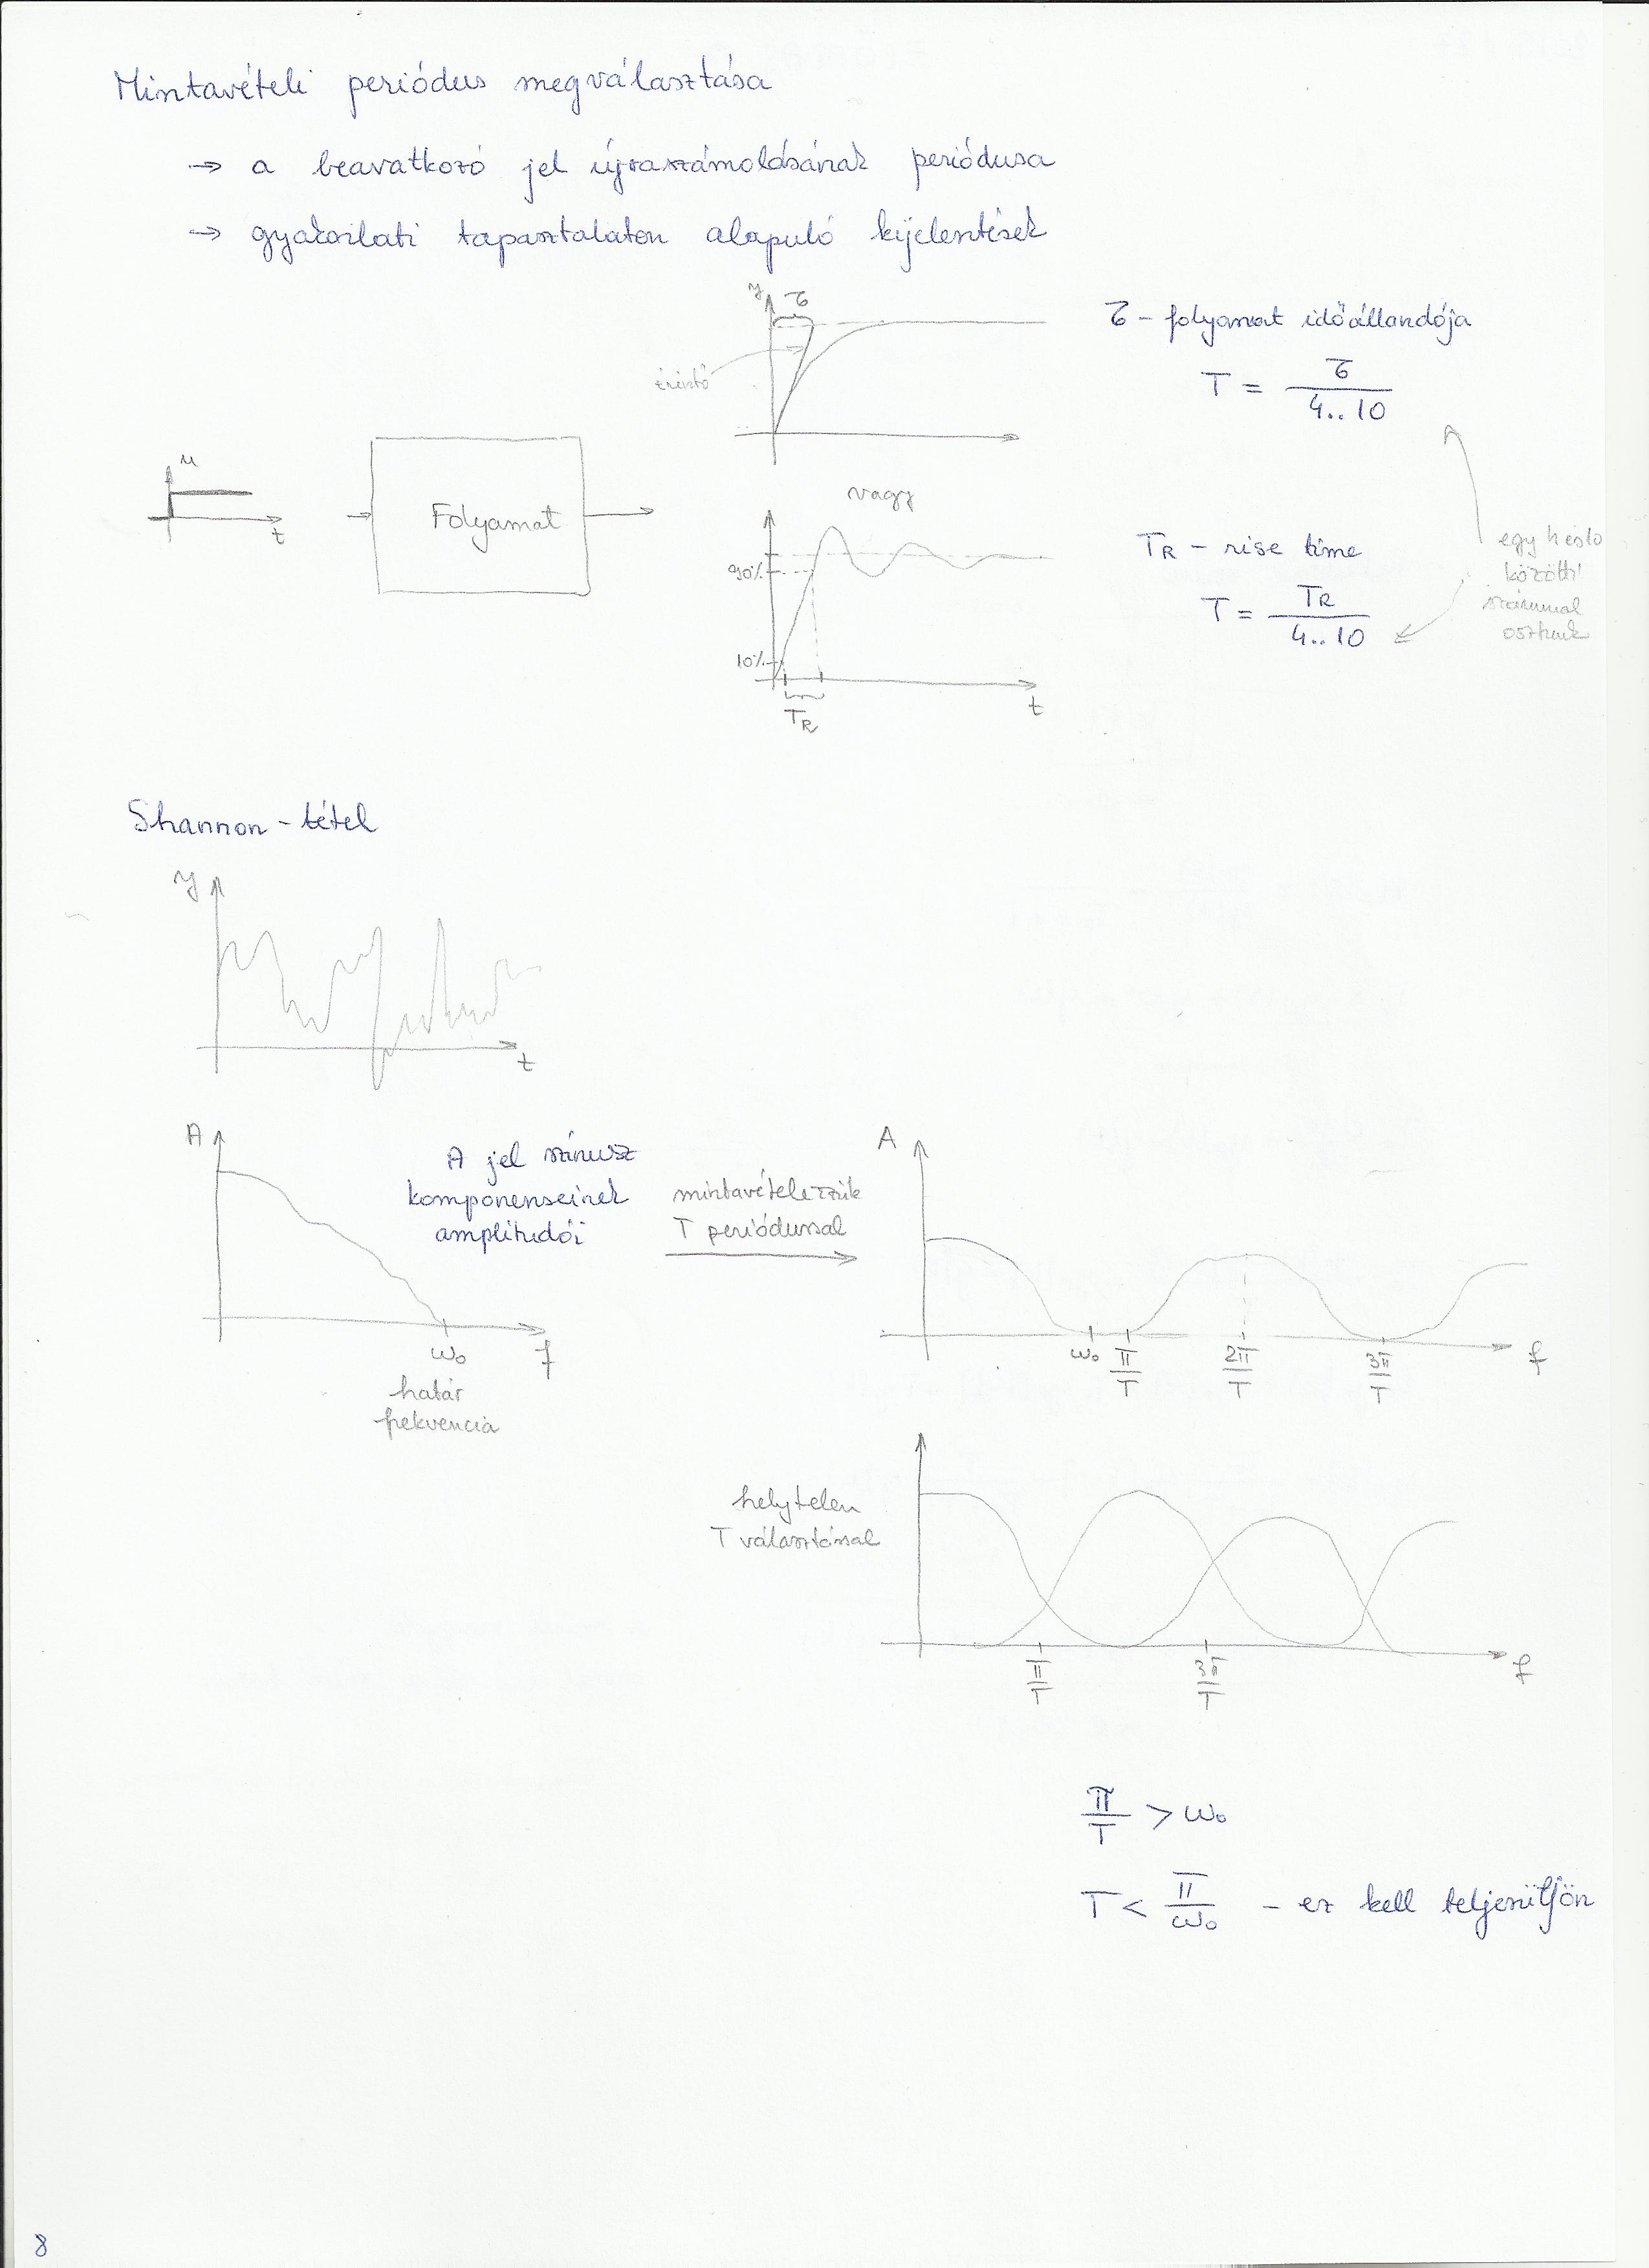 Mintavételi periódus megválasztása
→ a beavatkozó jel újraszámolásának periódusa
→ gyakorlati tapasztalaton alapuló kijelentések
y
τ
érintő
τ - folyamat időállandója
T = τ / 4..10
u
t
Folyamat
vagy
90%
10%
t
TR
TR - rise time
T = TR / 4..10
egy
közötti
számmal
osztunk
Shannon-tétel
y
t
A
ω₀
f
határ
frekvencia
A jel szinusz
komponenseinek
amplitúdói
mintavételezzük
T periódussal
A
ω₀
π/T
2π/T
3π/T
f
helytelen
T választással
π/T
3π/T
f
π/T > ω₀
T < π/ω₀ - ez kell teljesüljön
8